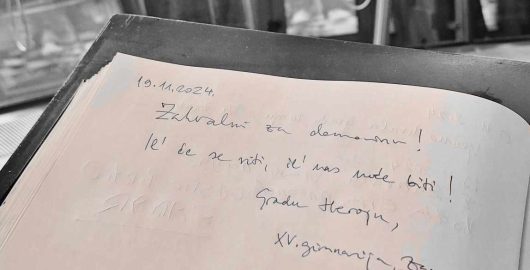 19.11.2024.
Zahvalni za domovinu!
Il' će se niti, il' nas neće biti!
Gradu Heroju,
XV. gimnazija, Za